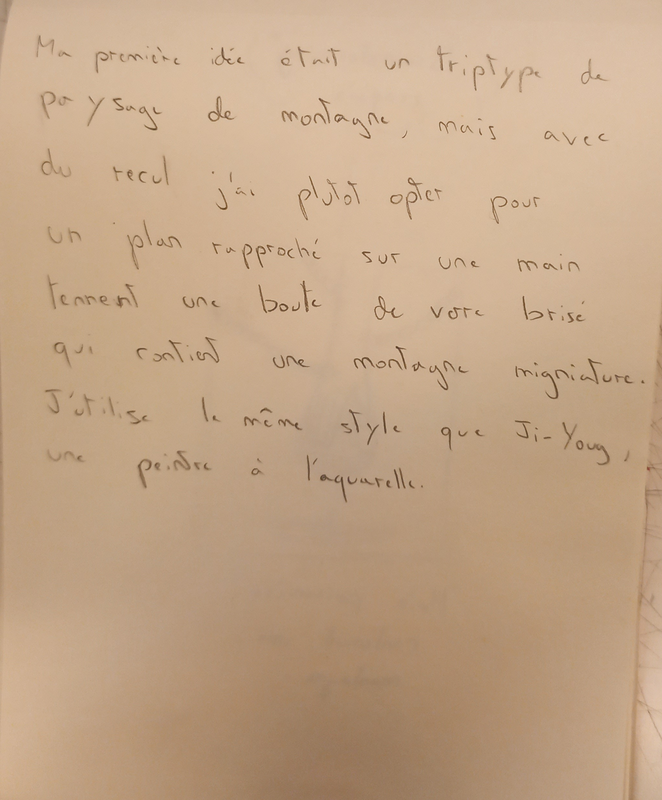 Ma première idée était un triptype de
paysage de montagne, mais avec
du recul j'ai plutot opter pour
un plan rapproché sur une main
tennent une boule de verre brisé
qui contient une montagne migniature.
J'utilise le même style que Ji-Young,
une peintre à l'aquarelle.